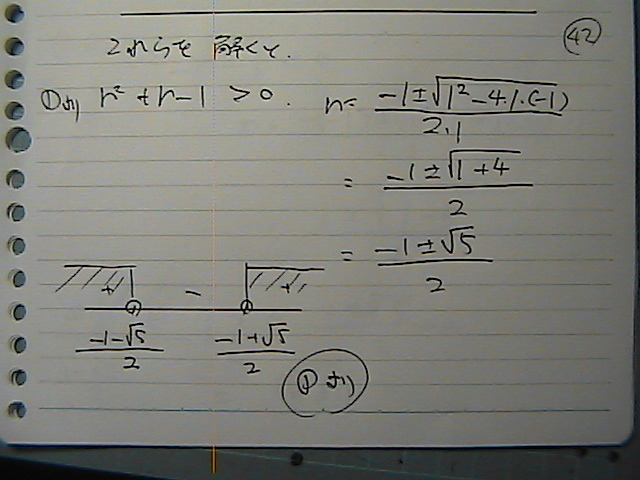 42
これらを解くと、
①より r²+r-1>0. r= (-1±√(1²-4・1・(-1)))/(2・1)
= (-1±√(1+4))/2
= (-1±√5)/2
+ - +
(-1-√5)/2 (-1+√5)/2
①より